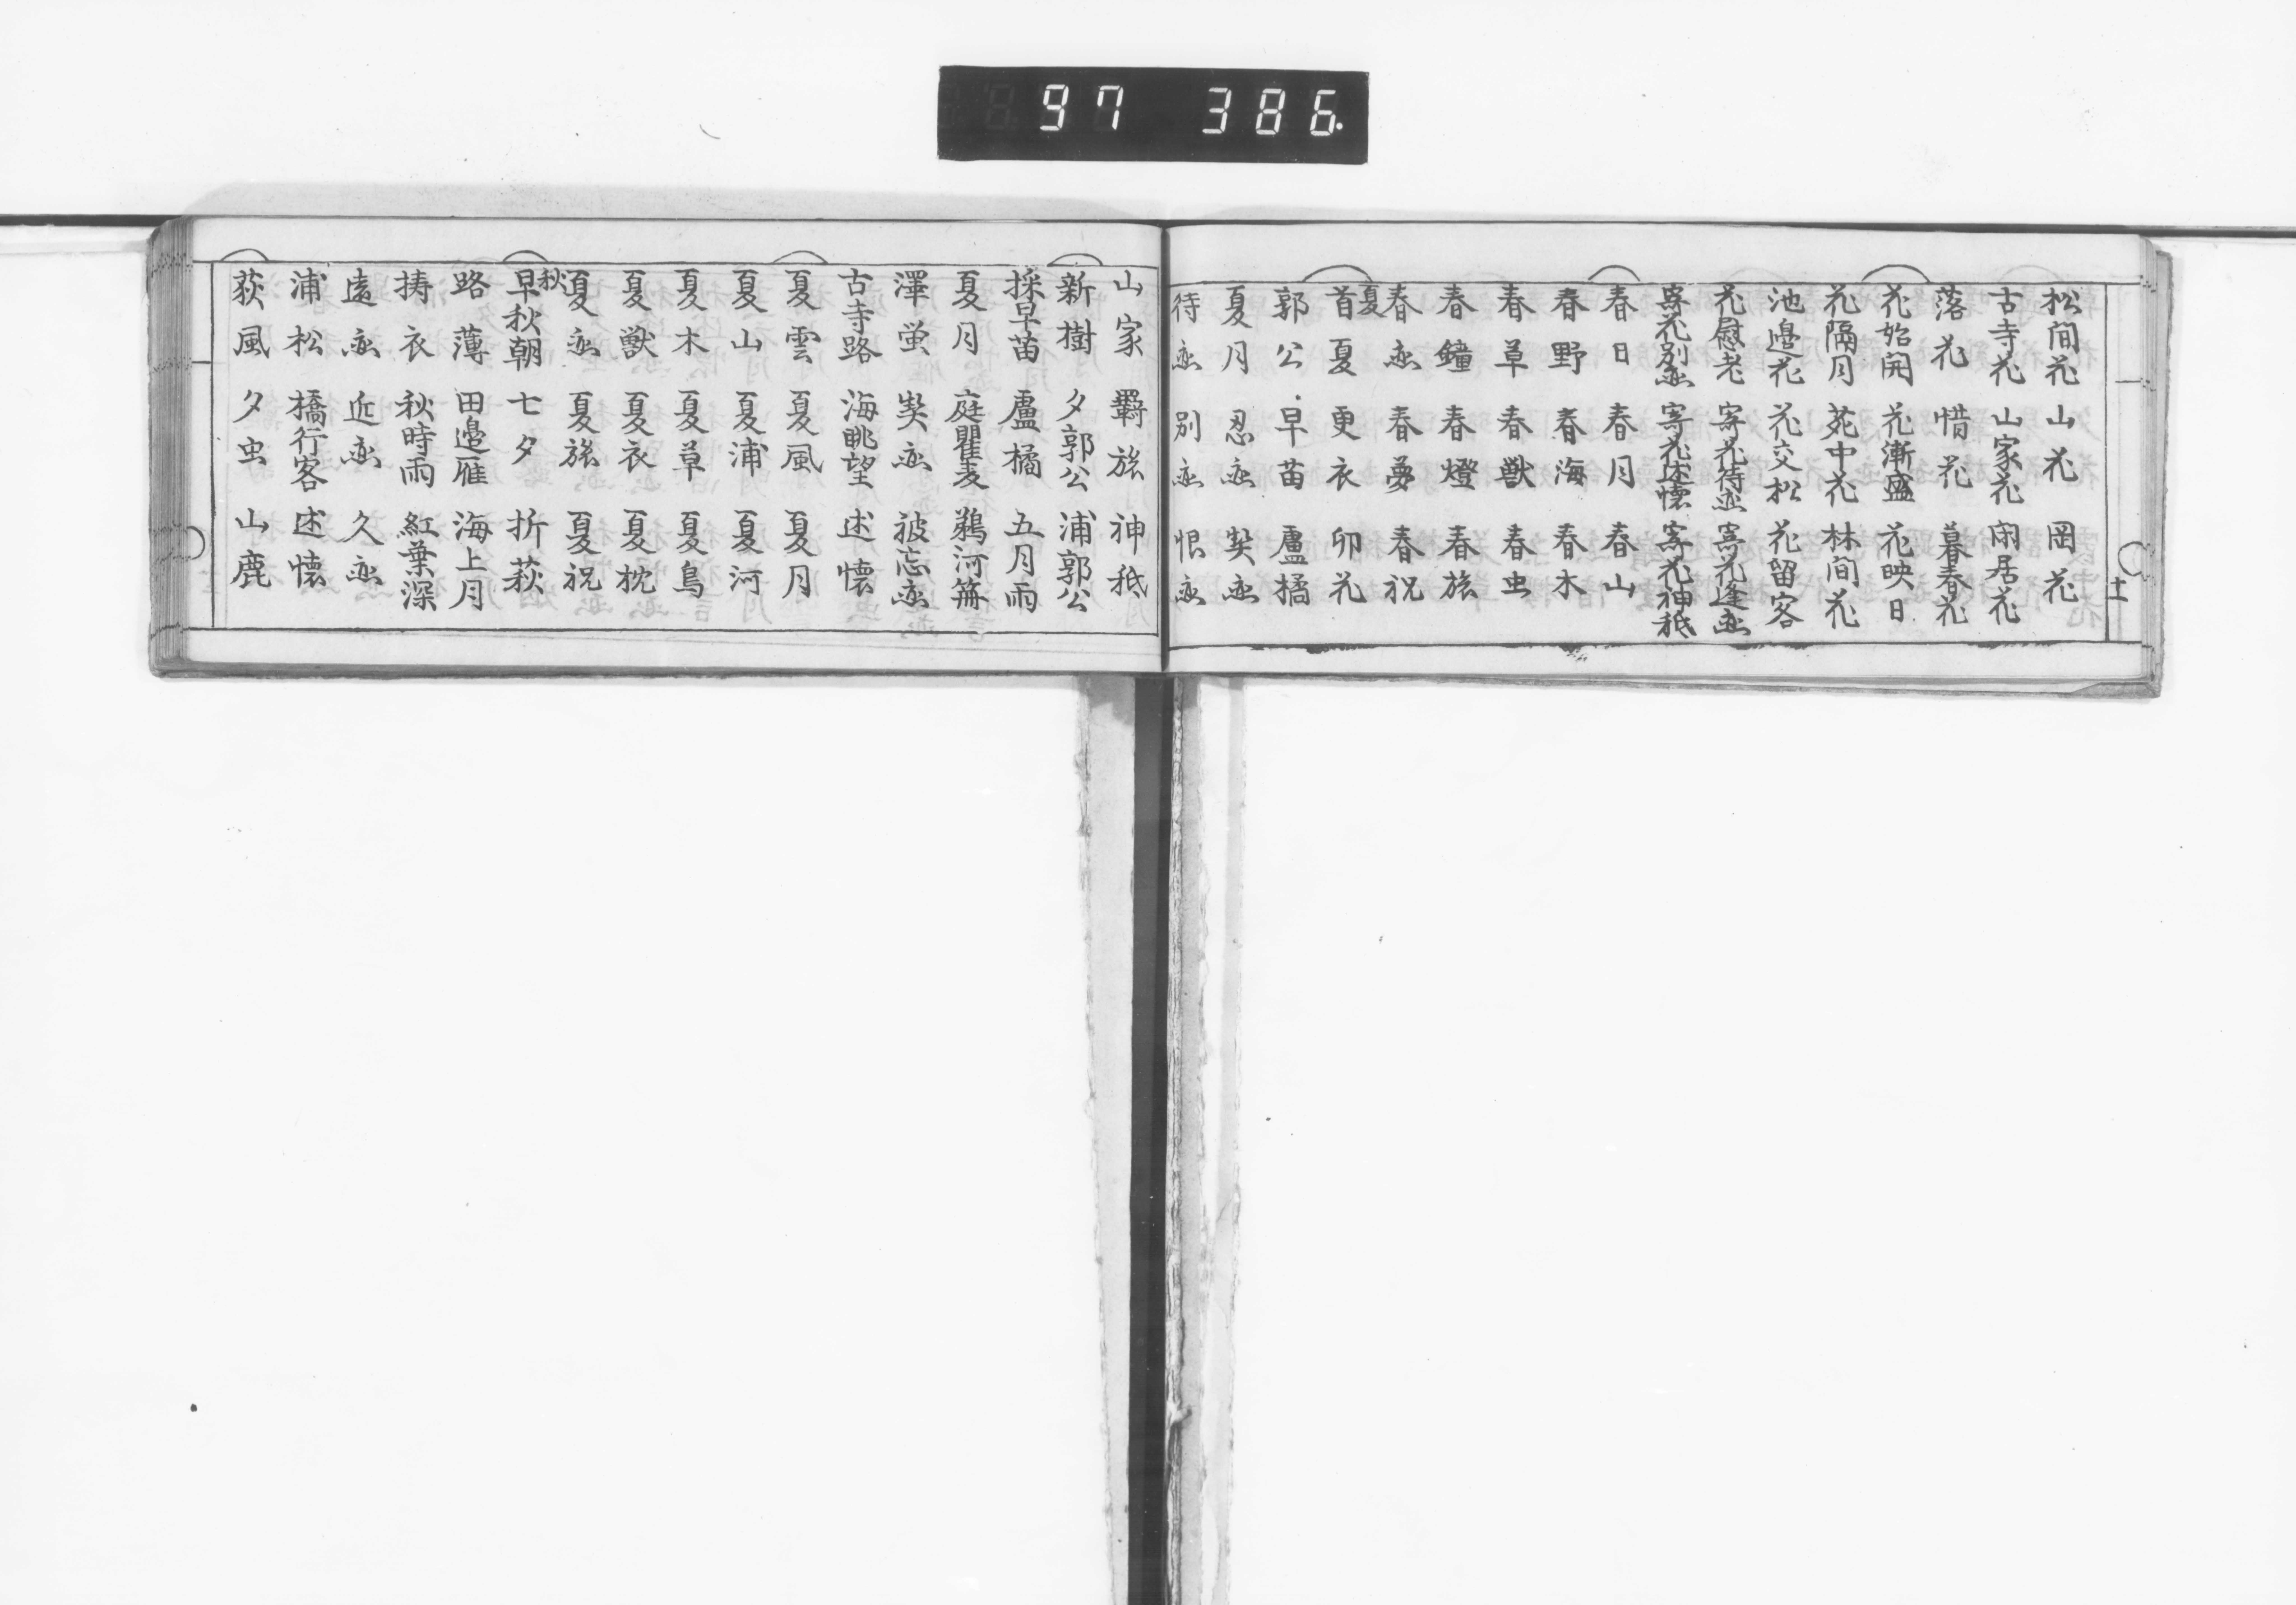 97 386.
松間花 山花 岡花
古寺花 山家花 閑居花
落花 惜花 暮春花
花始開 花漸盛 花映日
花隔月 苑中花 林間花
池邉花 花交松 花留客
花慰老 寄花待恋 寄花逢恋
寄花別恋 寄花述懐 寄花神祇
春日 春月 春山
春野 春海 春木
春草 春獣 春虫
春鐘 春燈 春旅
春恋 春夢 春祝
夏
首夏 更衣 卯花
郭公 早苗 盧橘
夏月 忍恋 契恋
待恋 別恋 恨恋
十一
山家 羇旅 神祇
新樹 夕郭公 浦郭公
採早苗 盧橘 五月雨
夏月 庭瞿麦 鵜河篝
澤蛍 契恋 被忘恋
古寺路 海眺望 述懐
夏雲 夏風 夏月
夏山 夏浦 夏河
夏木 夏草 夏鳥
夏獣 夏衣 夏枕
夏恋 夏旅 夏祝
秋
早秋朝 七夕 折萩
路薄 田邉雁 海上月
擣衣 秋時雨 紅葉深
遠恋 近恋 久恋
浦松 橋行客 述懐
荻風 夕虫 山鹿